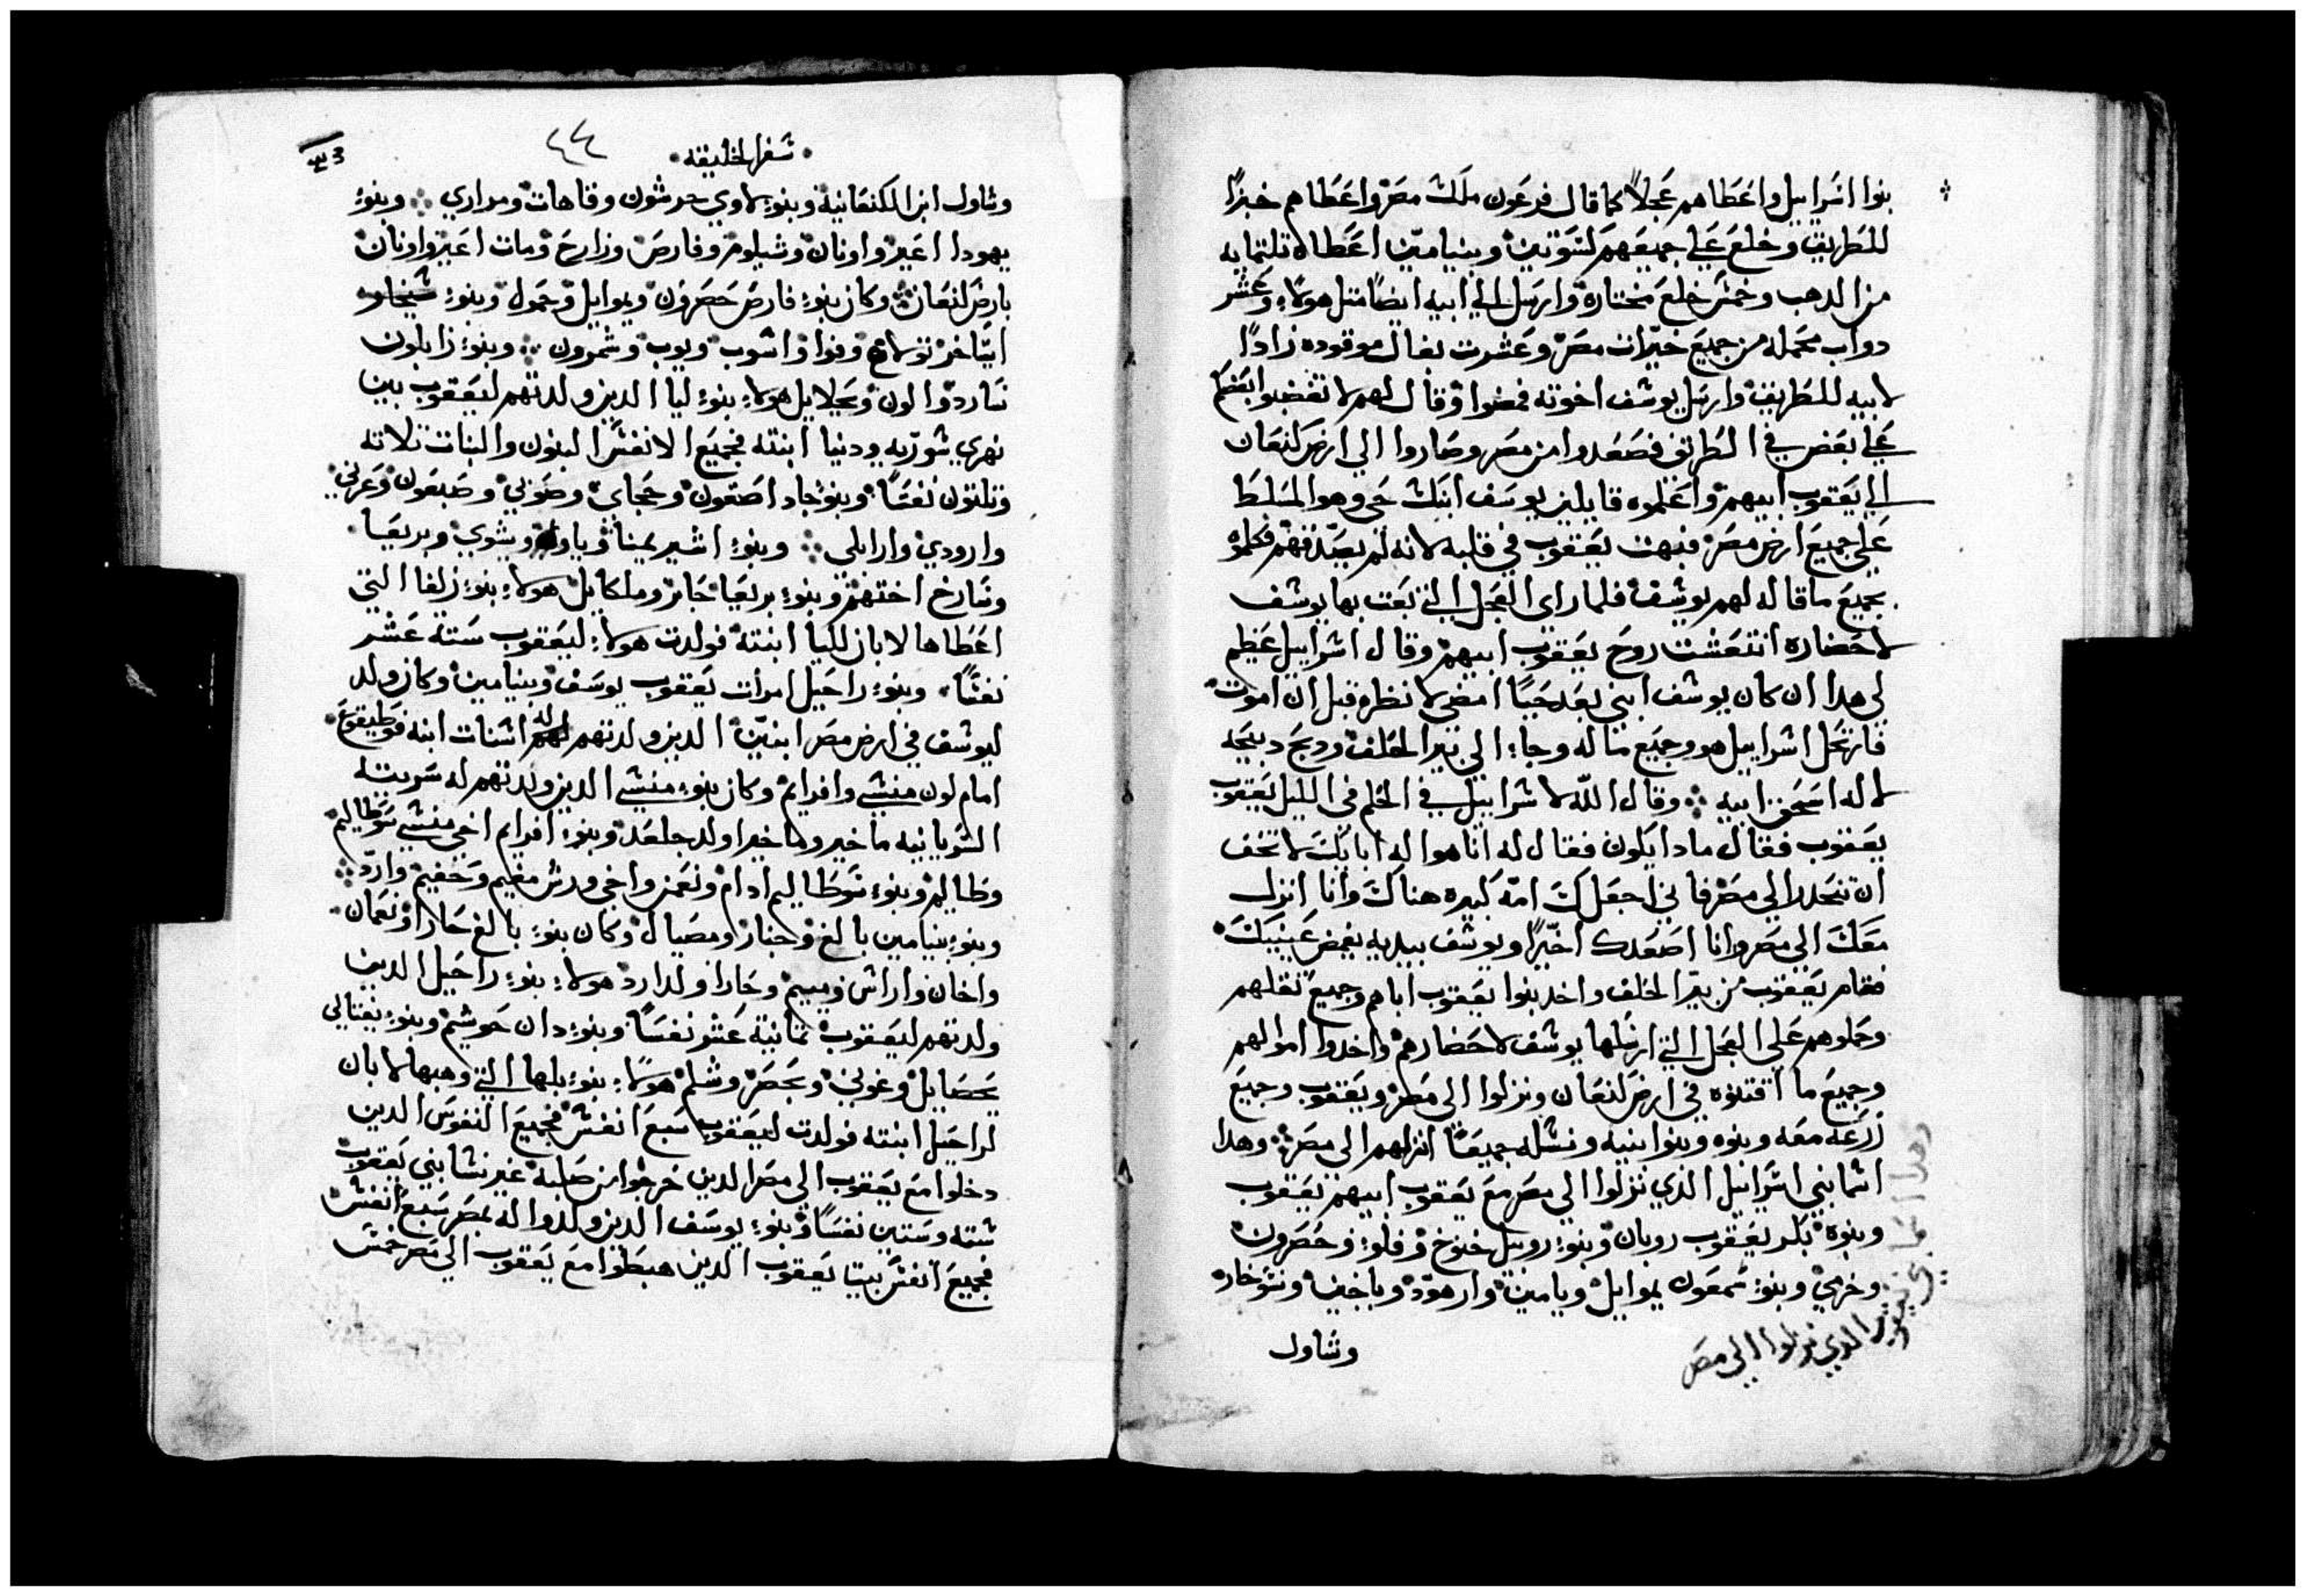 بنوا اسراييل واعطاهم عجلاً كما قال فرعون ملك مصر واعطاهم خبزاً
للطريق وخلع علي جميعهم لتنوتين وبنيامين اعطاه تلتمايه
من الدهب وخمس خلع مختاره وارسل الي ابيه ايضاً متل هولاء وعشر
دواب محمله من جميع خيرات مصر وعشرت بغال موقوده زاداً
لابيه للطريق وارسل يوسف اخوته فمضوا وقال لهم لا تغضبوا بعضكم
علي بعض في الطريق فصعدوا من مصر وصاروا الي ارض كنعان
الي يعقوب ابيهم واعلموه قايلين يوسف ابنك حي وهو المسلط
علي جميع ارض مصر فبهت يعقوب في قلبه لانه لم يصدقهم فكلموه
بجميع ما قاله لهم يوسف فلما راي العجل التي بعت بها يوسف
لاحضاره انتعشت روح يعقوب ابيهم وقال اسراييل عظيم
لي هدا ان كان يوسف ابني بعد حياً امضي لانظره قبل ان اموت
فارتحل اسراييل هو وجميع ماله وجاء الي بير الحلف ودبح دبيحه
لاله اسحق ابيه وقال الله لاسراييل في الحلم في الليل يعقوب
يعقوب فقال مادا يكون فقال له انا هو اله ابايك لا تخف
ان تنحدر الي مصر فاني اجعلك امه كبيره هناك وانا انزل
معك الي مصر وانا اصعدك اخيراً ويوسف بيديه يغمض عينيك
فقام يعقوب من بير الحلف واخد بنوا يعقوب اباهم وجميع تقلهم
وحملوهم علي العجل التي ارسلها يوسف لاحضارهم واخدوا اموالهم
وجميع ما اقتنوه في ارض كنعان ونزلوا الي مصر ويعقوب وجميع
زرعه معه وبنوه وبنوا بنيه ونسله جميعاً انزلهم الي مصر وهدا
اسما بني اسراييل الذي نزلوا الي مصر مع يعقوب ابيهم يعقوب
وبنوه بكر يعقوب روبان وبنوء روبيل خنوخ وفلوء وحصرون
وخرمي وبنوء شمعون يموايل ويامين وارهود وياخين وتنوخار
وشاول
الدي نزلوا الي مصر
سفر الخليقه
٤٤
وشاول ابن الكنعانية وبنوء لاوي جرشون وقاهات ومراري وبنوء
يهودا اعير واونان وشيلوم وفارص وزارح ومات اعير واونان
بارض كنعان وكان بنوء فارص حصرون ويموايل وحمول وبنوء
ايتاخر تولاع وفوا واشوب ويوب وشمرون وبنوء زابلون
سارد والون ومحلاييل هولاء بنوء ليا الدين ولدتهم ليعقوب بين
نهري سوريه ودنيا ابنته فجميع الانفس البنون والبنات تلاته
وتلتون نفساً وبنوء جاد اصقون وحجاي وصوني وصبعون وعرني
وارودي وارايلي وبنوء اشير يمنا وياوا ويشوي وبريعا
وسارخ اختهم وبنوء بريعا حابر وملكاييل هولاء بنوء زلفا التي
اعطاها لابان لليا ابنته فولدت هولاء ليعقوب ستة عشر
نفساً وبنوء راحيل امرات يعقوب يوسف وبنيامين وكان ولد
ليوسف في ارض مصر ابنين الدين ولدتهم له اسنات ابنه فوطيفوع
امام لون منشي وافرايم وكان بنوء منشي الدين ولدتهم له سريته
السريانيه ماخير وماخير اولد جلعد وبنوء افرايم اخي منشي سوطاليم
وطاليم وبنوء سوطاليم ادام ونعمن واخي ورش مغيم وحفيم وارد
وبنوء بنيامين بالغ وجنار ومصيال وكان بنوء بالغ حارا ونعمان
واخان واراش وميم وحارا ولد ارد هولاء بنوء راحيل الدين
ولدتهم ليعقوب تمانية عشر نفساً وبنوء دان حوشيم وبنوء نفتالي
يحصاييل وغوني ويحصر وشلم هولاء بنوء بلها التي وهبها لابان
لراحيل ابنته فولدت ليعقوب سبع انفس فجميع النفوس الدين
دخلوا مع يعقوب الي مصر الدين خرجوا من صلبه غير نسا بني يعقوب
سته وستين نفساً وبنوء يوسف الدين ولدوا له بمصر سبع انفس
فجميع انفس بيت يعقوب الدين هبطوا مع يعقوب الي مصر خمس